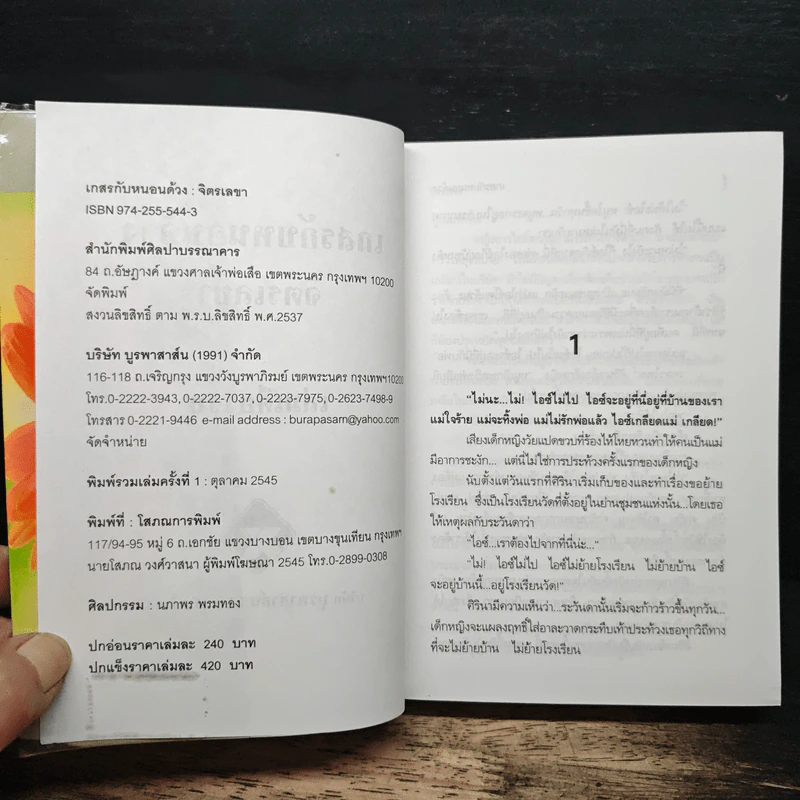 เกสรกับหนอนด้วง : จิตรเลขา
ISBN 974-255-544-3
สำนักพิมพ์ศิลปาบรรณาคาร
84 ถ.อัษฎางค์ แขวงศาลเจ้าพ่อเสือ เขตพระนคร กรุงเทพฯ 10200
จัดพิมพ์
สงวนลิขสิทธิ์ ตาม พ.ร.บ.ลิขสิทธิ์ พ.ศ.2537
บริษัท บูรพาสาส์น (1991) จำกัด
116-118 ถ.เจริญกรุง แขวงวังบูรพาภิรมย์ เขตพระนคร กรุงเทพฯ10200
โทร.0-2222-3943, 0-2222-7037, 0-2223-7975, 0-2623-7498-9
โทรสาร 0-2221-9446 e-mail address : burapasarn@yahoo.com
จัดจำหน่าย
พิมพ์รวมเล่มครั้งที่ 1 : ตุลาคม 2545
พิมพ์ที่ : โสภณการพิมพ์
117/94-95 หมู่ 6 ถ.เอกชัย แขวงบางบอน เขตบางขุนเทียน กรุงเทพฯ
นายโสภณ วงศ์วาสนา ผู้พิมพ์โฆษณา 2545 โทร.0-2899-0308
ศิลปกรรม : นภาพร พรมทอง
ปกอ่อนราคาเล่มละ 240 บาท
ปกแข็งราคาเล่มละ 420 บาท
1
“ไม่นะ...ไม่! ไอซ์ไม่ไป ไอซ์จะอยู่ที่นี่อยู่ที่บ้านของเรา
แม่ใจร้าย แม่จะทิ้งพ่อ แม่ไม่รักพ่อแล้ว ไอซ์เกลียดแม่ เกลียด!”
เสียงเด็กหญิงวัยแปดขวบที่ร้องไห้โหยหวนทำให้คนเป็นแม่
มีอาการชะงัก... แต่นี่ไม่ใช่การประท้วงครั้งแรกของเด็กหญิง
นับตั้งแต่วันแรกที่ศิรินาเริ่มเก็บของและทำเรื่องขอย้าย
โรงเรียน ซึ่งเป็นโรงเรียนวัดที่ตั้งอยู่ในย่านชุมชนแห่งนั้น...โดยเธอ
ให้เหตุผลกับระวันดาว่า
“ไอซ์...เราต้องไปจากที่นี่นะ...”
“ไม่! ไอซ์ไม่ไป ไอซ์ไม่ย้ายโรงเรียน ไม่ย้ายบ้าน ไอซ์
จะอยู่บ้านนี้...อยู่โรงเรียนวัด!”
ศิรินามีความเห็นว่า...ระวันดานั้นเริ่มจะก้าวร้าวขึ้นทุกวัน...
เด็กหญิงจะแผลงฤทธิ์ใส่อาละวาดกระทืบเท้าประท้วงเธอทุกวิถีทาง
ที่จะไม่ย้ายบ้าน ไม่ย้ายโรงเรียน